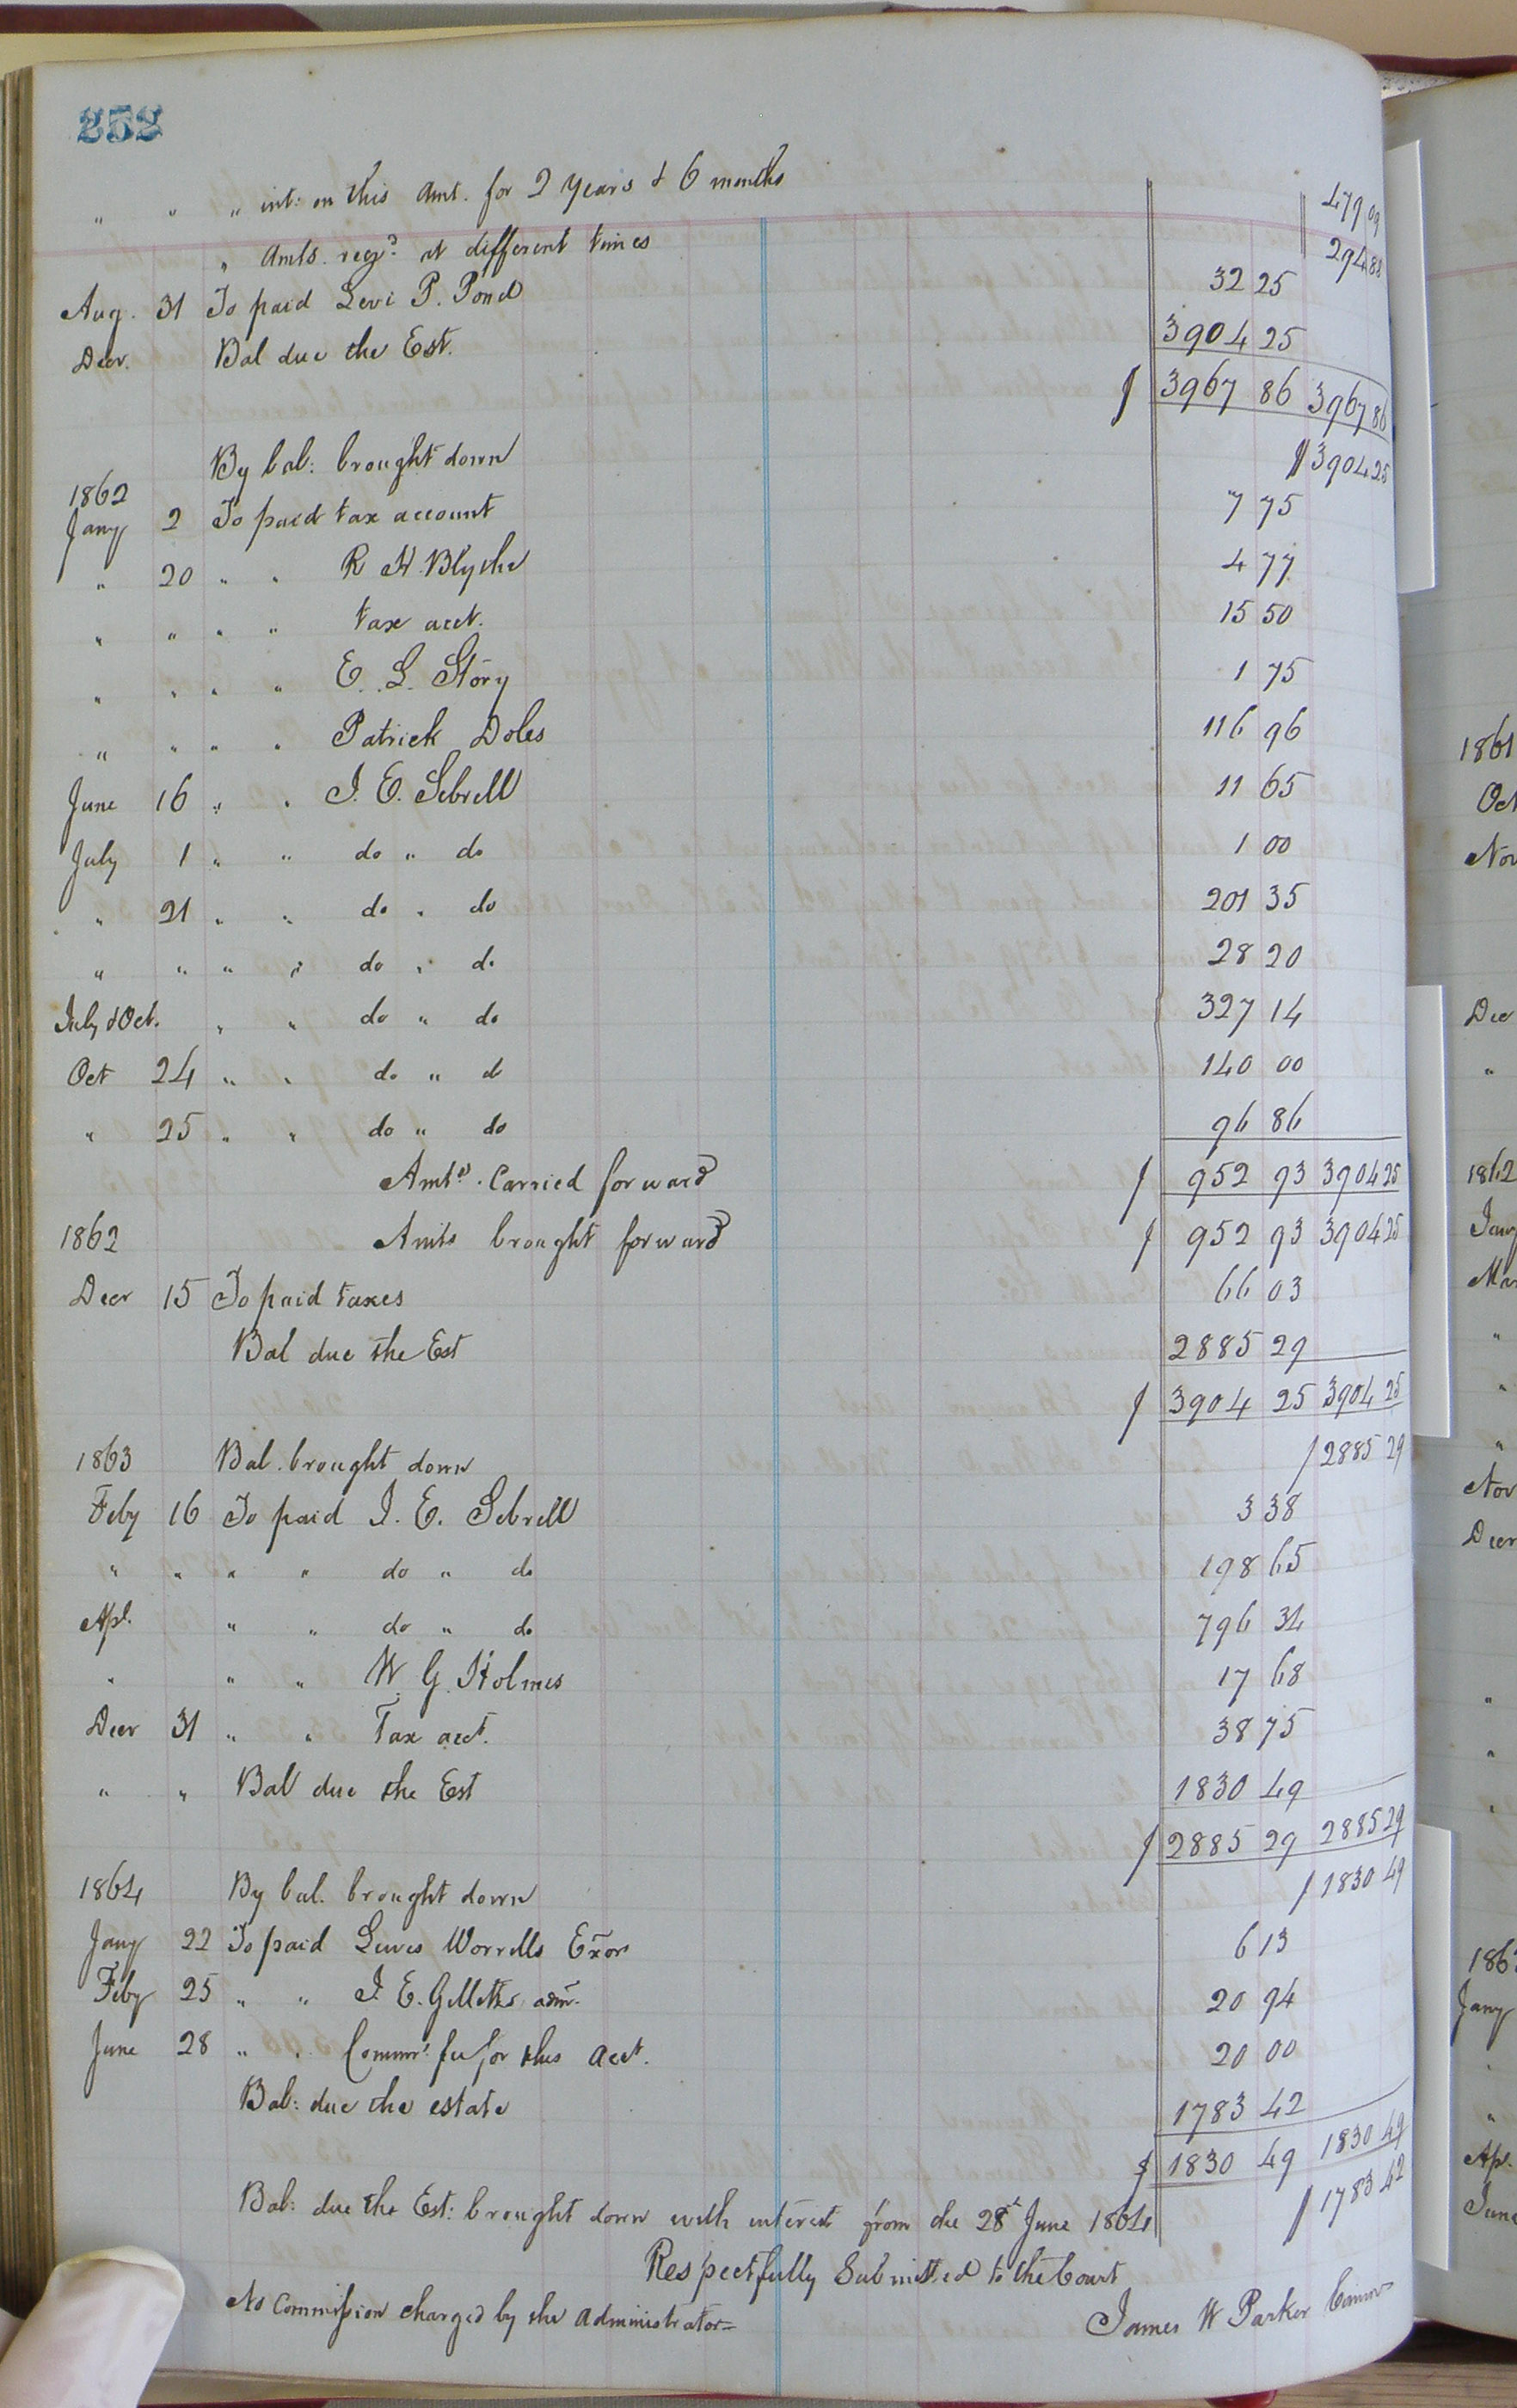 252
" " " int: on this Amt. for 2 years & 6 months 479 09
" Amts. recd. at different times 294 88
Aug. 31 To paid Levi P. Pond 32 25
Decr. Bal due the Est. 3904 25
$ 3967 86 3967 86
By bal: brought down $ 3904 25
1862
Jany 2 To paid tax account 7 75
" 20 " " R H. Blythe 4 77
" " " " tax acct. 15 50
" " " " E. L. Story 1 75
" " " " Patrick Doles 116 96
June 16 " " J. E. Sebrell 11 65
July 1 " " do " do 1 00
" 21 " " do " do 201 35
" " " " do " do 28 20
July & Oct. " " do " do 327 14
Oct 24 " " do " do 140 00
" 25 " " do " do 96 86
Amts. Carried forward $ 952 93 3904 25
1862 Amts brought forward $ 952 93 3904 25
Decr 15 To paid taxes 66 03
Bal due the Est 2885 29
$ 3904 25 3904 25
1863 Bal. brought down $ 2885 29
Feby 16 To paid J. E. Sebrell 3 38
" " " " do " do 198 65
Apl. " " do " do 796 34
" " " W. G. Holmes 17 68
Decr 31 " " Tax acct. 38 75
" " Bal due the Est 1830 49
$ 2885 29 2885 29
1864 By bal. brought down $ 1830 49
Jany 22 To paid Lewis Worrells Exor 6 13
Feby 25 " " J. E. Gillette adm. 20 94
June 28 " " Commr. fee for this acct. 20 00
Bal: due the estate 1783 42
$ 1830 49 1830 49
Bal: due the Est: brought down with interest from the 28th June 1864 $ 1783 42
Respectfully Submitted to the Court
No Commission charged by the Administrator=
James W Parker Commr
1861
Oct
Nov
Dec
"
1862
Jany
Mar
"
"
"
Nov
Decr
"
"
"
186
Jany
"
"
Apl.
June